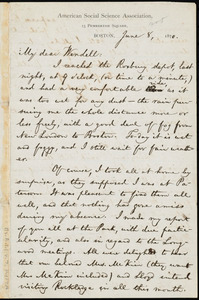 American Social Science Association,
13 Pemberton Square,
Boston, June 8, 1870.
My dear Wendell:
I reached the Roxbury depot, last
night, at 9 o'clock, (on time to a minute,)
and had a very comfortable time as it
was too wet for any dust — the rain pur-
suing me the whole distance more or
less freely, with any amt. of fog from
New London to Boston. Today it is wet
and foggy, and I still wait for fair weat-
her.
Of course, I took all at home by
surprise, as they supposed I was at Pa-
terson. It was pleasant to find them all
well, and that nothing had gone amiss
during my absence. I made my report
of you all at the Park, with due partic-
ularity, and also in regard to the Long-
wood meetings. All were delighted to hear
that our beloved Mrs. McKim (they want
Mrs. McKim included) and Lloyd intend
visiting Rockledge in all this month.